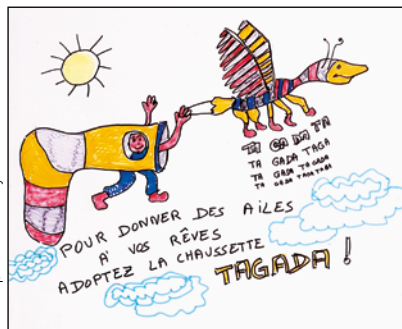 TA GA DA TA
TA GADA TAGA
TA GADA TAGADA
TA GADA TAGA TAGA
POUR DONNER DES AiLES
A' VOS RÊVES
ADOPTEZ LA CHAUSSETTE
TAGADA !